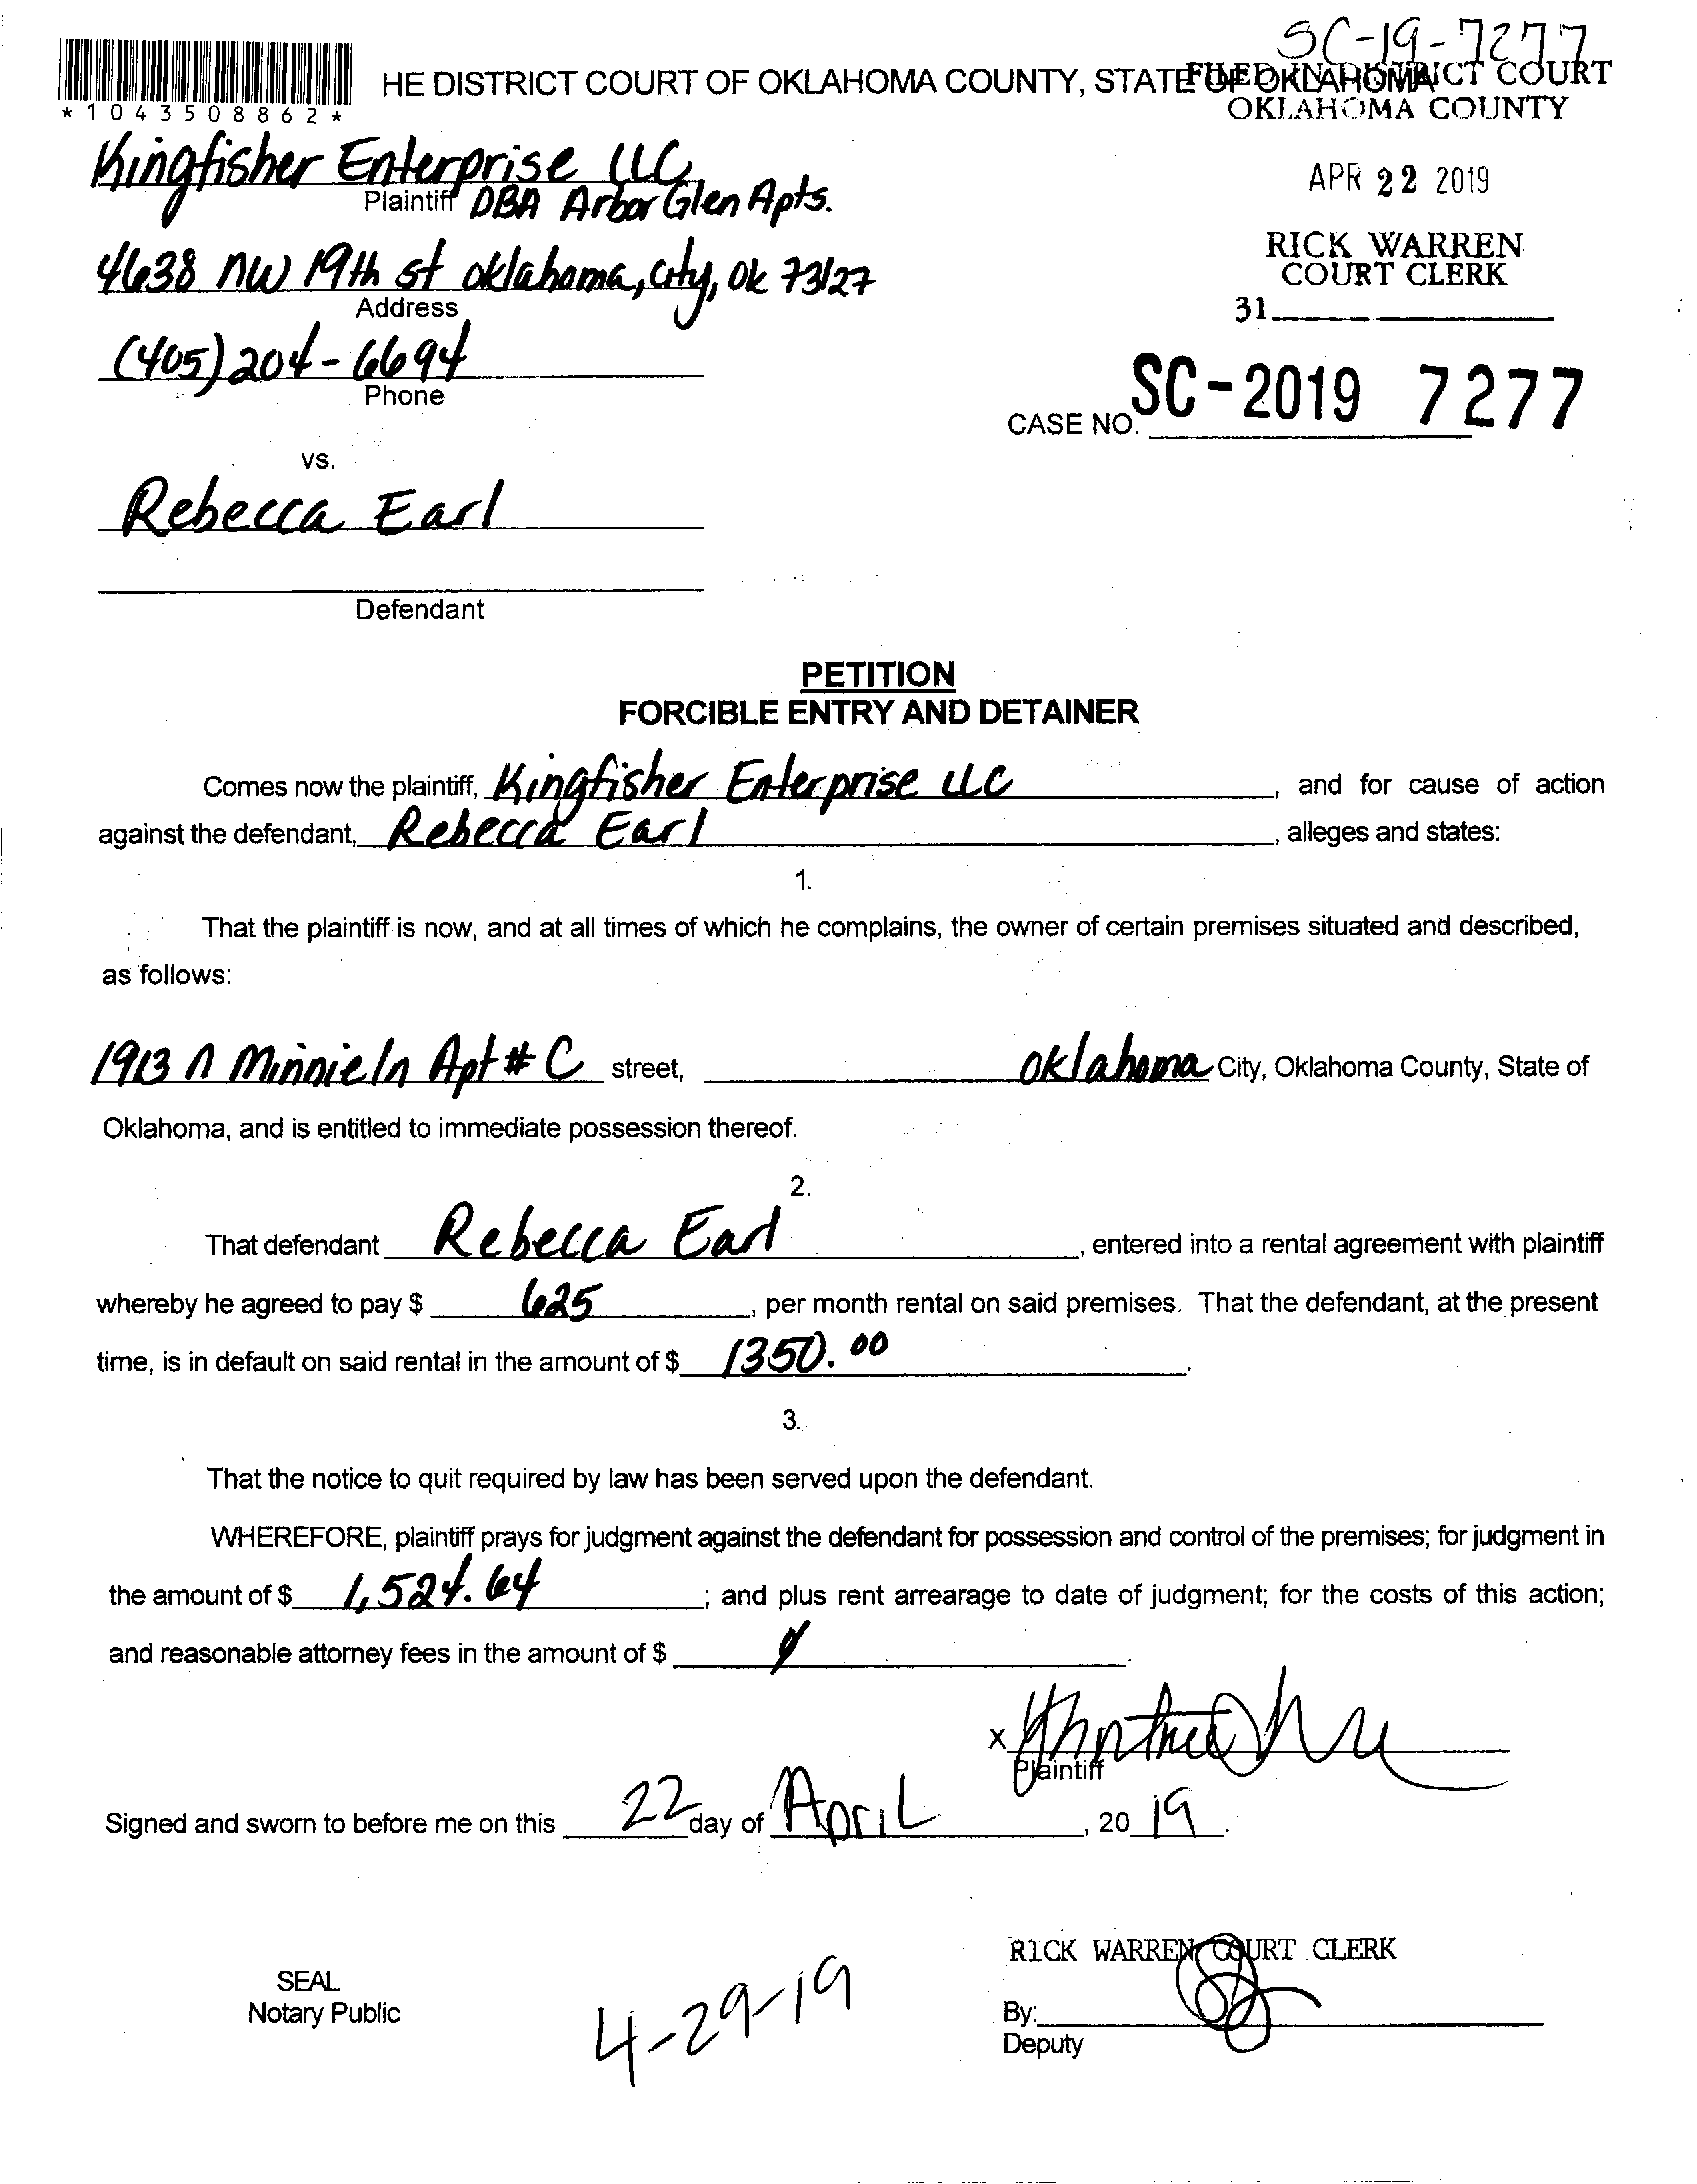 SC-19-7277
HE DISTRICT COURT OF OKLAHOMA COUNTY, STATE OF OKLAHOMA
FILED IN DISTRICT COURT
OKLAHOMA COUNTY
*1043508862*
Kingfisher Enterprise LLC
Plaintiff DBA Arbor Glen Apts.
APR 22 2019
4638 NW 19th st oklahoma, city, Ok 73127
Address
RICK WARREN
COURT CLERK
31
(405) 204-6694
Phone
CASE NO. SC-2019 7277
vs.
Rebecca Earl
Defendant
PETITION
FORCIBLE ENTRY AND DETAINER
Comes now the plaintiff, Kingfisher Enterprise LLC, and for cause of action
against the defendant, Rebecca Earl, alleges and states:
1.
That the plaintiff is now, and at all times of which he complains, the owner of certain premises situated and described,
as follows:
1913 N Minnie ln Apt # C street, oklahoma City, Oklahoma County, State of
Oklahoma, and is entitled to immediate possession thereof.
2.
That defendant Rebecca Earl, entered into a rental agreement with plaintiff
whereby he agreed to pay $ 625, per month rental on said premises. That the defendant, at the present
time, is in default on said rental in the amount of $ 1350.00.
3.
That the notice to quit required by law has been served upon the defendant.
WHEREFORE, plaintiff prays for judgment against the defendant for possession and control of the premises; for judgment in
the amount of $ 1,524.64; and plus rent arrearage to date of judgment; for the costs of this action;
and reasonable attorney fees in the amount of $
x
Plaintiff
Signed and sworn to before me on this 22 day of April, 20 19.
RICK WARREN COURT CLERK
SEAL
Notary Public
4-29-19
By:
Deputy